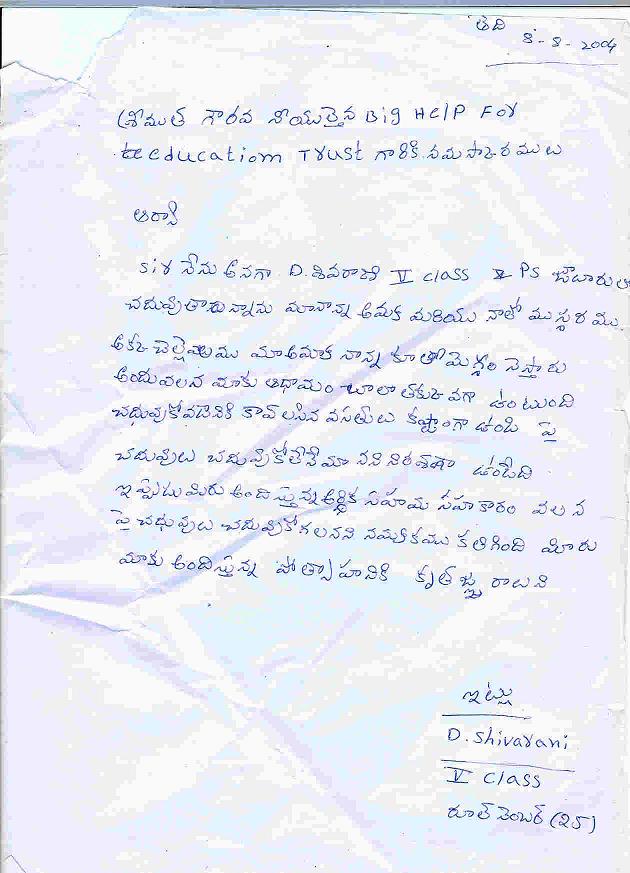 తేది
8-8-2004
శ్రీమతి గౌరవ నీయులైన Big Help For
education Trust గారికి నమస్కారములు
ఆర్యా
sir నేను అనగా D.శివరాణి V class PS
చదువుతున్నాను మా నాన్న అమ్మక మరియు నాతో ముగ్గురము
అక్క చెల్లెళ్లము మా అమ్మ నాన్న కూలి చేస్తారు
అందువలన మాకు ఆధాయం చాలా తకుకవగా ఉంటుంది
చదువుకోవడానికి కావలసిన వసతులు కష్టంగా ఉండి పై
చదువులు చదువుకోలేనేమో నని నిరాశగా ఉండేది
ఇప్పుడు మీరు అందిస్తున్న ఆర్థిక సహాయ సహకారం వలన
పై చధువులు చదువుకోగలనని నమ్మకము కలిగింది మీరు
మాకు అందిస్తున్న పోత్సాహనికి కృతజ్ఞురాలుని
ఇట్లు
D. Shivarani
V Class
రూల్ నెంబర్ (25)